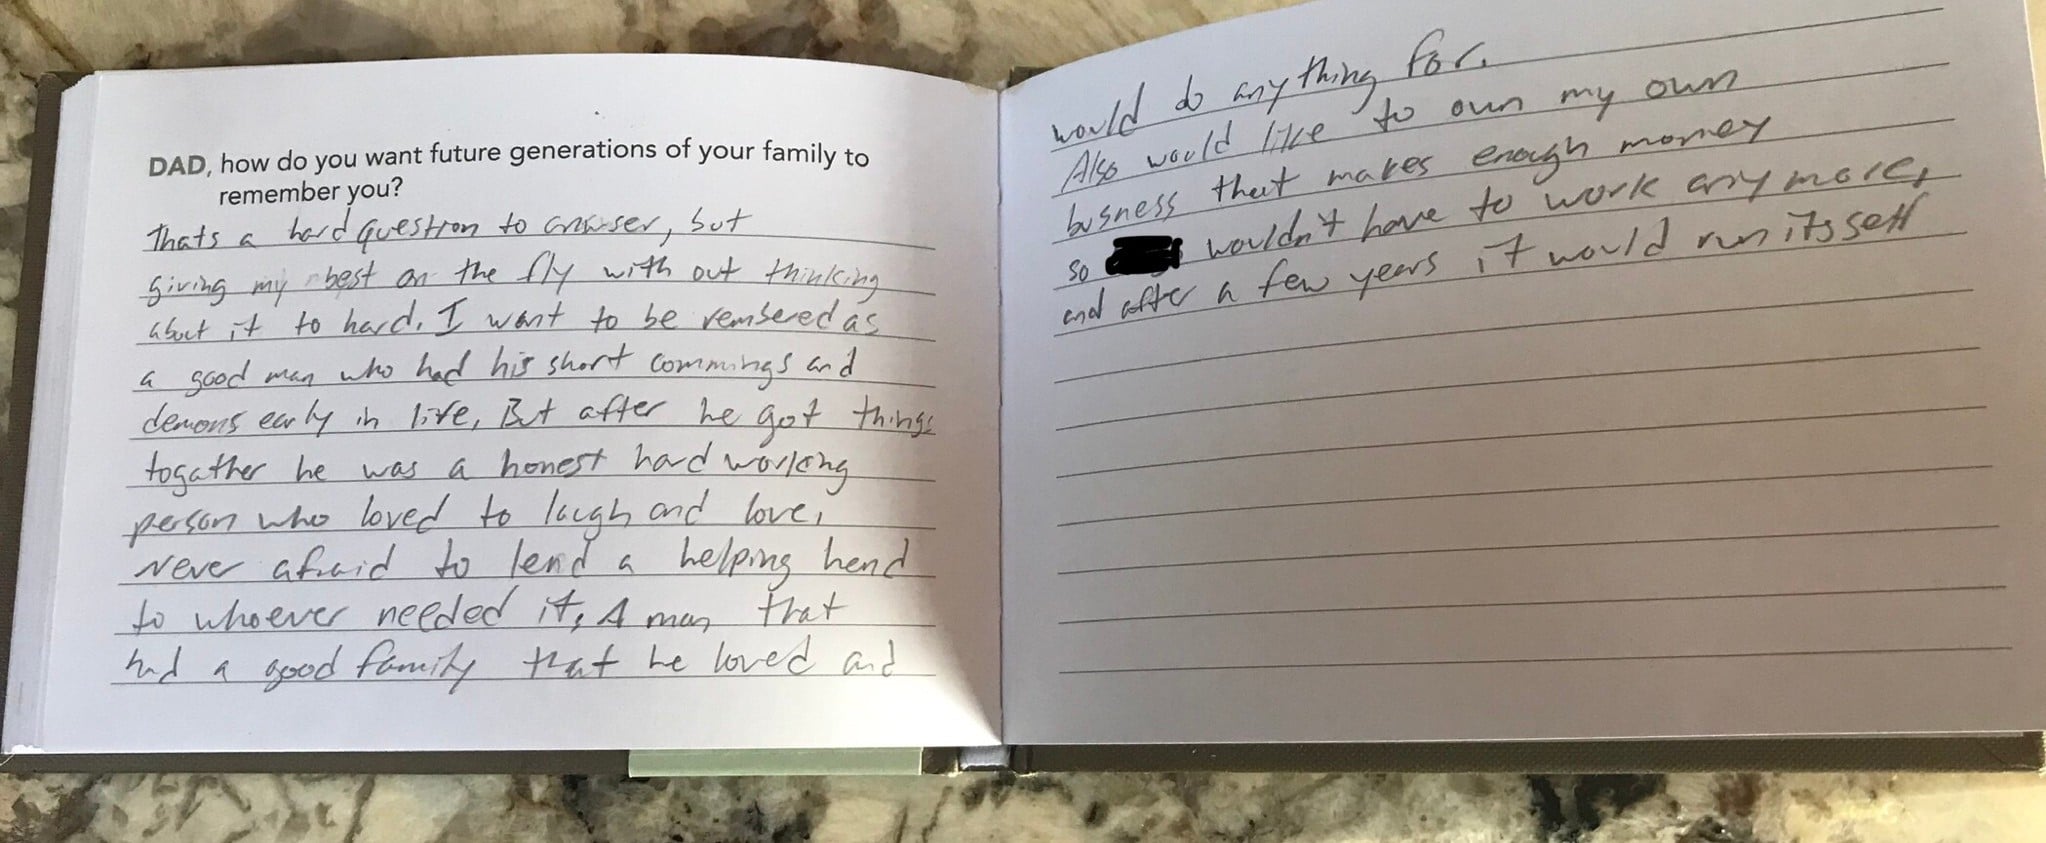 DAD, how do you want future generations of your family to
remember you?
Thats a hard question to answser, but
giving my best on the fly with out thinking
about it to hard. I want to be rembered as
a good man who had his short commings and
demons early in life, But after he got things
togather he was a honest hard working
person who loved to laugh and love,
never afraid to lend a helping hand
to whoever needed it, A man that
had a good family that he loved and
would do anything for.
Also would like to own my own
busness that makes enough money
so wouldn't have to work anymore,
and after a few years it would run itsself